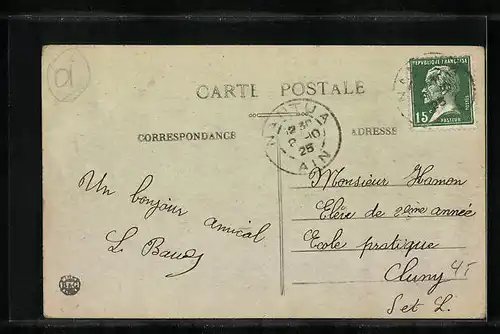 01
CARTE POSTALE
CORRESPONDANCE
ADRESSE
REPUBLIQUE FRANÇAISE
POSTES
15c
PASTEUR
NANTUA
12 30
2 -10
25
AIN
Un bonjour amical
L. Baudy
Monsieur Hamon
Elève de 2ème année
Ecole pratique
Cluny
4 F
S et L.
B&C